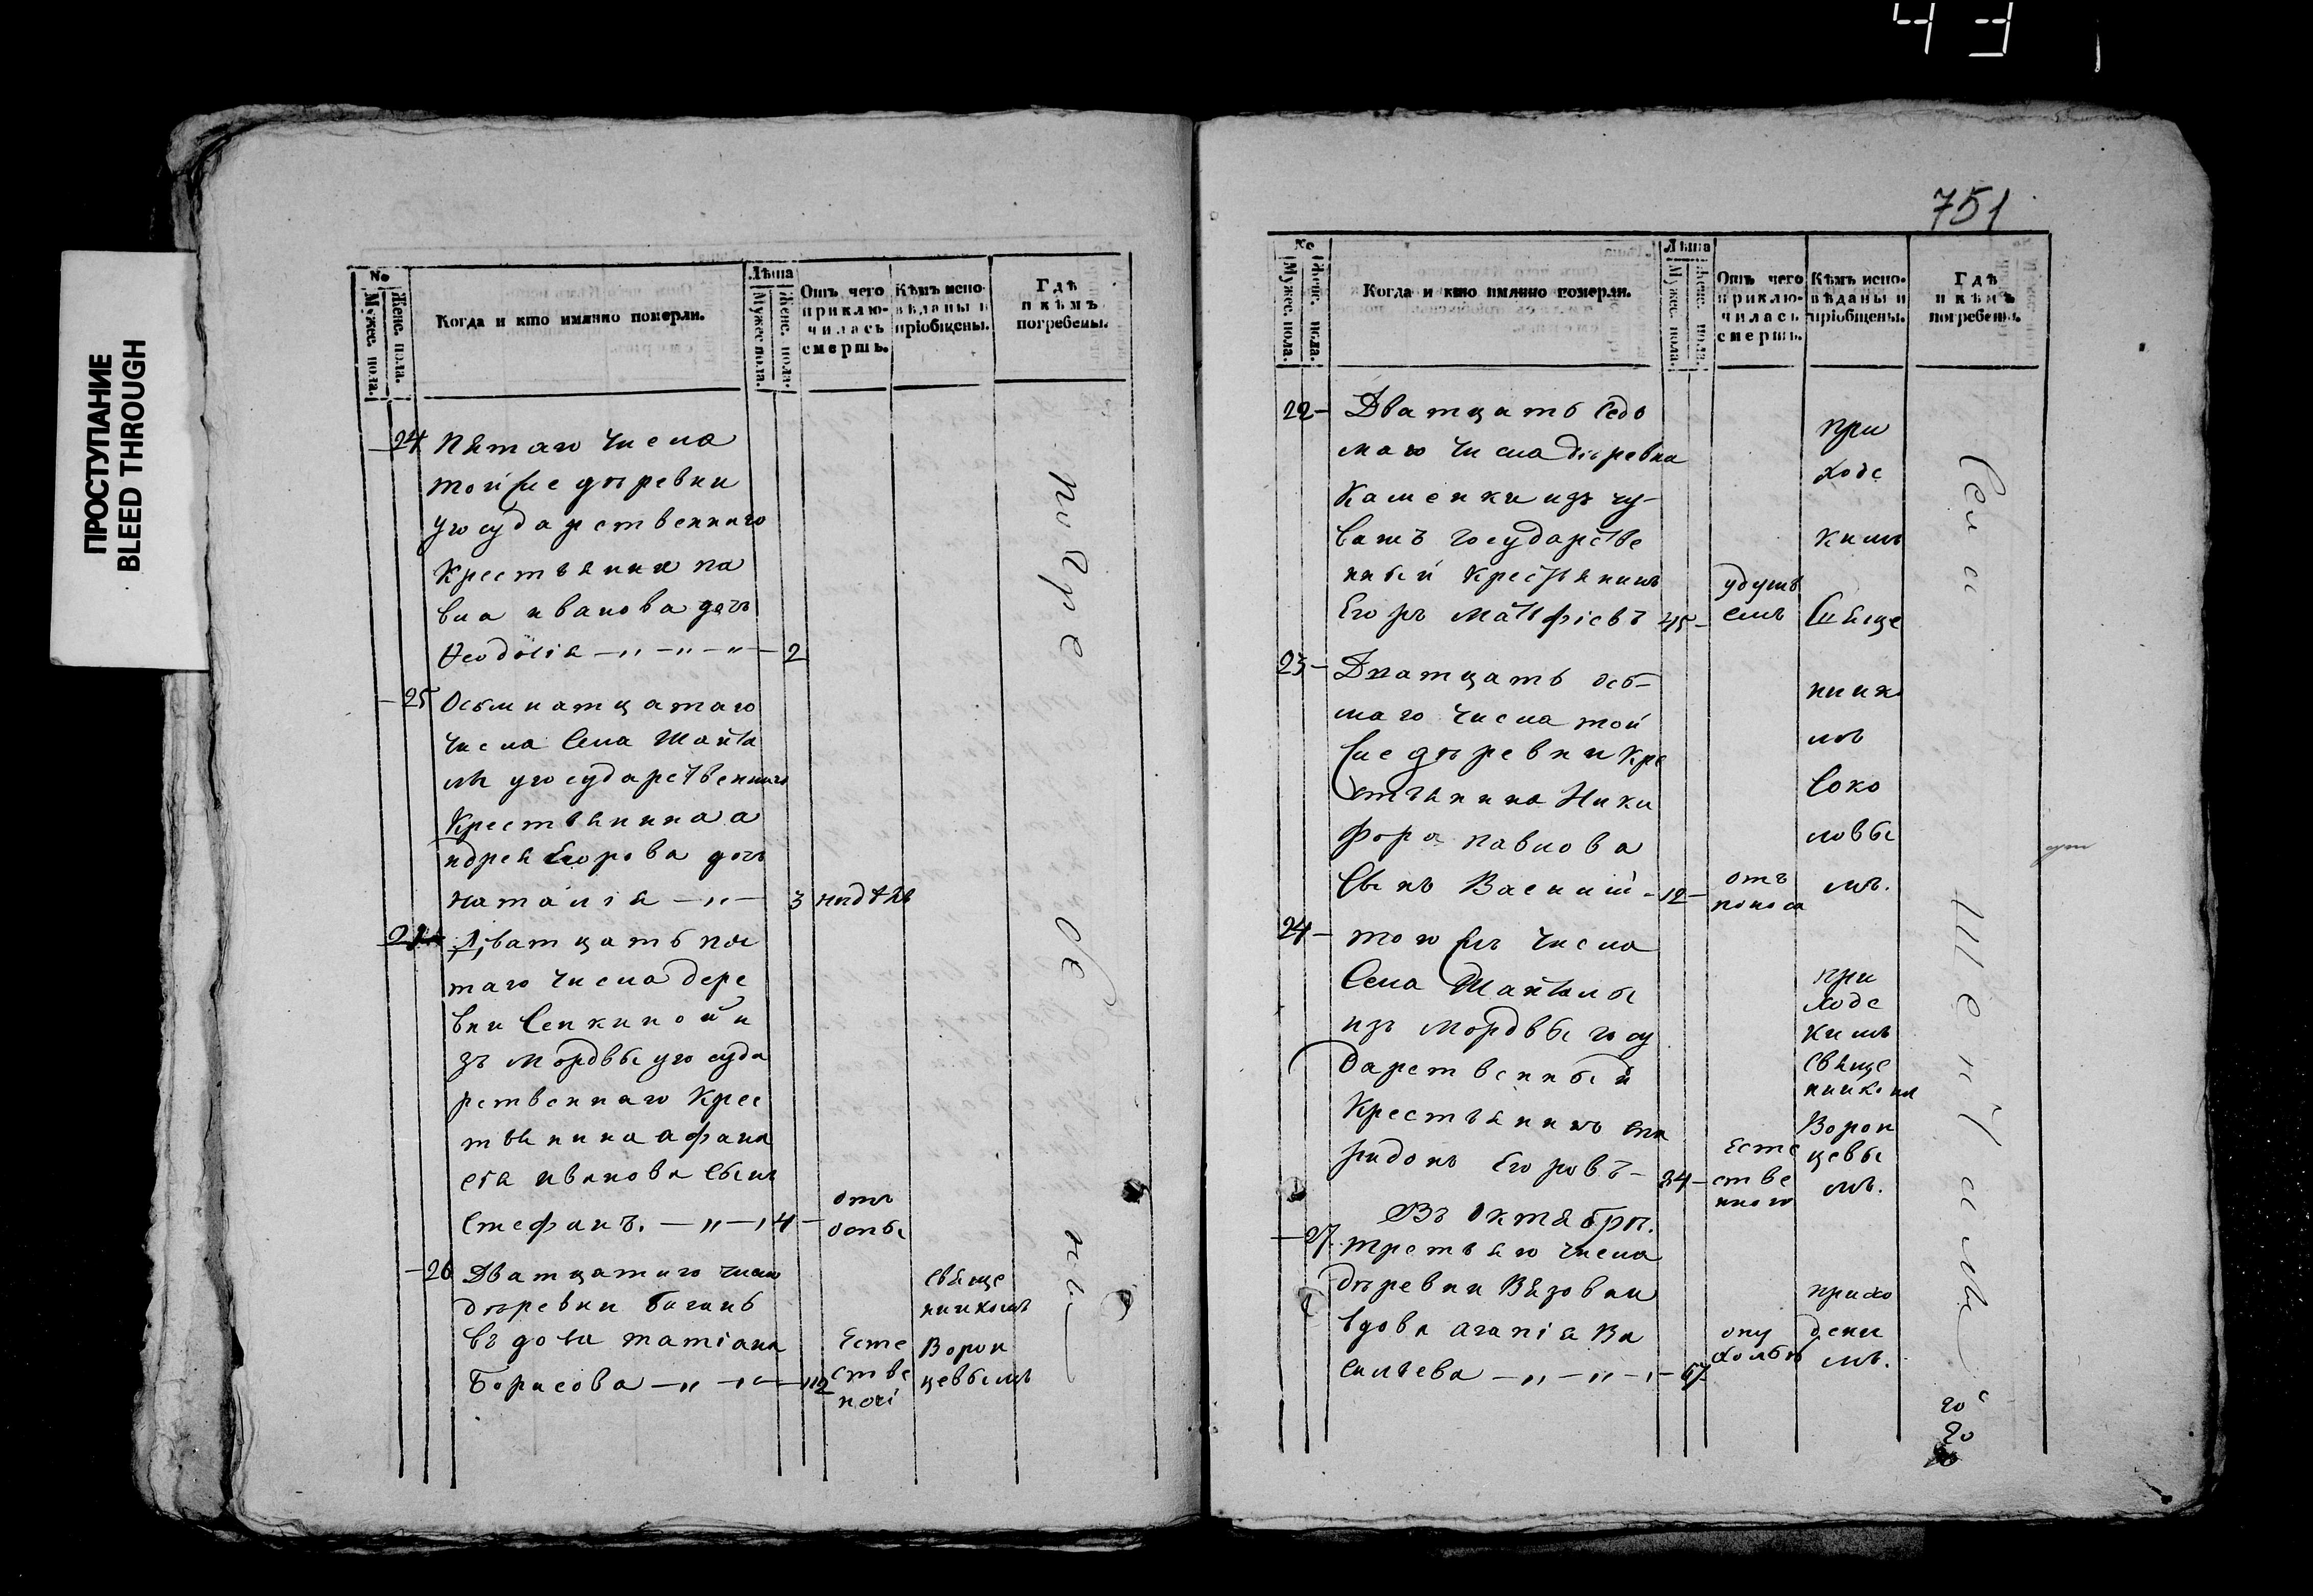 43
ПРОСТУПАНИЕ
BLEED THROUGH
№
Мужес. пола.
Женс. пола.
Когда и кто имянно померли.
Лѣта
Мужес. пола.
Женс. пола.
Отъ чего приклю-
чилась
смерть.
Кѣмъ испо-
вѣданы и
пріобщены.
Гдѣ
и кѣмъ
погребены.
24 Пятаго числа
тойже деревни
у государственнаго
Крестьянина па
вла иванова дочь
Ѳеодосія — „ — „ — „ — 2
25 Осьмнатцатаго
числа Села Шайта
у государственнаго
Крестьянина а
ндрея Егорова дочь
наталія — „ — 3
21 Дватцать
таго числа дере
вни Сепкиной и
зъ мордвы у госуда
рственнаго Крес
тьянина афана
сія иванова Сынъ
Стефанъ. — „ — 4 —
отъ
оспы
26 Дватцатаго числа
деревни
вдова татіана
Борисова — „ — „ —
Есте
стве
Свяще
нникомъ
Ворон
цевымъ
751
№
Мужес. пола.
Женс. пола.
Когда и кто имянно померли.
Лѣта
Мужес. пола.
Женс. пола.
Отъ чего
приклю-
чилась
смерть.
Кѣмъ испо-
вѣданы и
пріобщены.
Гдѣ
и кѣмъ
погребены.
22 — Дватцать Седь
маго числа деревни
Каменки изъ чу-
вашъ государстве
нный Крестьянинъ
Егоръ Матфіевъ 45 —
удушь
емъ
при
ходс
кимъ
Свяще
23 — Дватцать ось-
маго числа той
же деревни Кре
стьянина Ники
фора павлова
Сынъ Василій — 12 —
отъ
поноса
нника
мъ
Соко
ловы
мъ.
24 — того жъ числа
Села Шайтамы
изъ мордвы госу
дарственный
Крестьянинъ Спи
ридонъ Егоровъ —
Есте
стве
ннаго
при
ходс
кимъ
свяще
нникомъ
Ворон
цевы
мъ.
Въ Октябрѣ.
27 третьяго числа
деревни Вязовки
вдова агапія Ва
сильева — „ — „ — 67
опу
холью
прихо
дски
мъ.